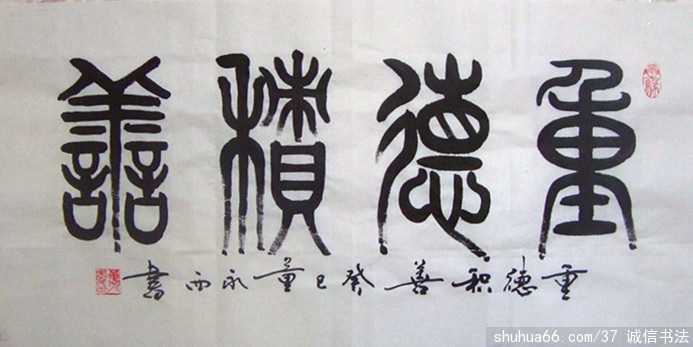 重德積善
重德积善 癸巳 董永西書
shuhua66.com/37 诚信书法